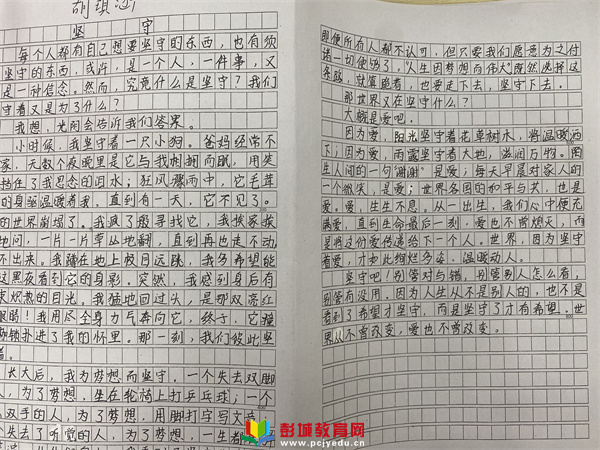 胡琪涵
坚 守
每个人都有自己想要坚守的东西，也有须
坚守的东西，或许，是一个人，一件事，又
是一种信念。然而，究竟什么是坚守？我们
守着又是为了什么？
我想，光阴会告诉我们答案。
小时候，我坚守着一只小狗。爸妈经常不
家，无数个夜晚里是它与我相拥而眠，用笑
挡住了我思念的泪水；狂风骤雨中，它毛茸
的身躯温暖着我。直到有一天，它不见了。
的世界崩塌了。我疯了般寻找它，我挨家挨
地问，一片一片草丛地翻，直到再也走不动
不出来，我蹲在地上极目远眺，我多希望能
这黑夜看到它的身影。突然，我感到身后有
炽热的目光，我猛地回过头，是那双亮红
眼睛！我用尽全身力气奔向它，终于，它撞
扑进了我的怀里。那一刻，我们彼此坚
着。
长大后，我为梦想而坚守，一个失去双脚
人，为了梦想，坐在轮椅上打乒乓球；一个
双手的人，为了梦想，用脚打字写文章；
失去了听觉的人，为了梦想，一生都
即便所有人都不认可，但只要我们愿意为之付
诸一切便够了，“人生因梦想而伟大”既然选择这
条路，就算跪着，也要走下去，坚守下去。
那世界又在坚守什么？
大概是爱吧。
因为爱，阳光坚守着花草树木，将温暖洒
下；因为爱，雨露坚守着大地，滋润万物。陌
生人间的一句“谢谢”是爱；每天早晨对家人的
一个微笑，是爱；世界各国的和平与关，也是
爱。爱，生生不息。从一出生，我们心中便充
满爱，直到生命最后一刻，爱也不曾熄灭，而
是将这份爱传递给下一个人。世界，因为坚守
着爱，才如此绚烂多姿，温暖动人。
坚守吧！别管对与错，别管别人怎么看，
别管有没用。因为人生从不是别人的，也不是
看到了希望才坚守，而是坚守了才有希望。世
界从不曾改变，爱也不曾改变。
彭城教育网
www.pcjyedu.cn